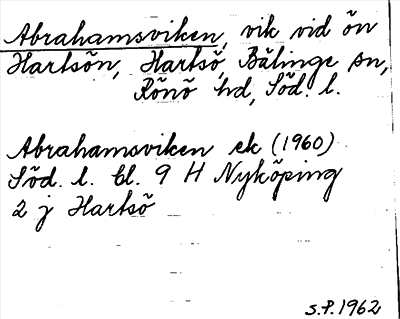 Abrahamsviken, vik vid ön
Hartsön, Hartsö, Bälinge sn,
Rönö hd, Söd. l.
Abrahamsviken ek (1960)
Söd. l. bl. 9 H Nyköping
2 j Hartsö
S.P. 1962